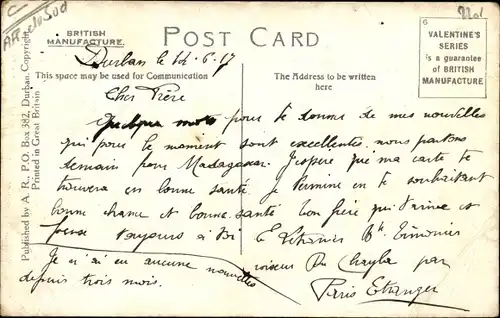 Af du Sud
BRITISH
MANUFACTURE.
POST CARD
6
VALENTINE'S
SERIES
is a guarantee
of BRITISH
MANUFACTURE
Durban le 14. 6. 17
This space may be used for Communication
The Address to be written
here
Published by A. R., P.O. Box 382, Durban. Copyright.
Printed in Great Britain
Cher Frère
Quelque mots pour te donner de mes nouvelles
qui pour le moment sont excellentes nous partons
demain pour Madagascar. J'espere que ma carte te
trouvera en bonne santé je termine en te souhaitant
bonne chance et bonne santé ton frère qui t'aime et
pense toujours a toi
Je n'ai eu aucune nouvelles
depuis trois mois.
croiseur Du Chayla par
Paris Etranger